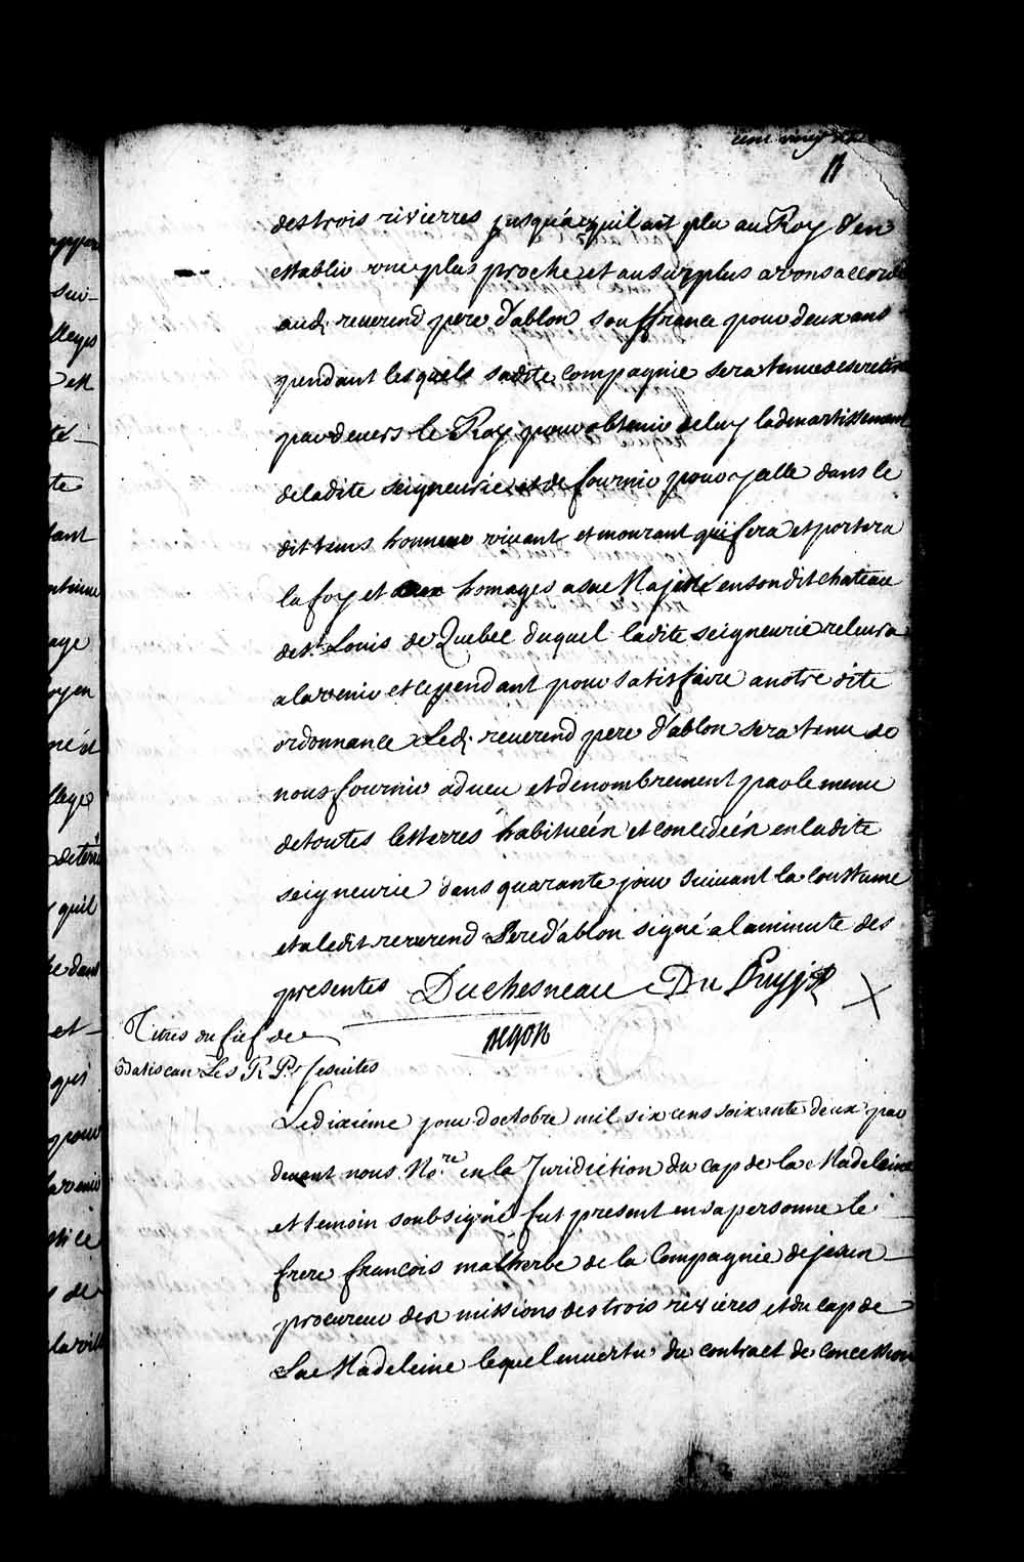 cent vingt
11
des trois rivierres jusqu'a ce quil ait plu au Roy d'en
establir une plus proche et au surplus avons accordé
aud. reverend pere d'ablon souffrance pour deux ans
pendant lesquels sadite compagnie sera tenue de se retirer
pardevers le Roy pour obtenir de luy ladmortissement
deladite seigneurie et de fournir pour jcelle dans le
dit tems homme vivant et mourant qui fera et portera
la foy et homages a sa Majesté en son dit chateau
de St. Louis de Quebec duquel ladite seigneurie relevera
a lavenir et cependant pour satisfaire a nostre dite
ordonnance Led. reverend pere d'ablon sera tenu de
nous fournir adveu et denombrement par le menu
de toutes les terres habituéés et concedéés en ladite
seigneurie dans quarante jour suivant la coustume
et a ledit reverend Pere d'ablon signé a la minute des
presentes Duchesneau Du Puy
Begon
Titres du fief de
Batiscan Les R. P. Jesuites
Le dixieme jour d'octobre mil six cens soixante deux par
devant nous No.re en la Juridiction du cap de la Madeleine
et temoin soubsigné fut present en sa personne le
frere francois malherbe de la Compagnie de jesus
procureur des missions des trois rivières et du cap de
La Madeleine lequel en vertu du contract de concession